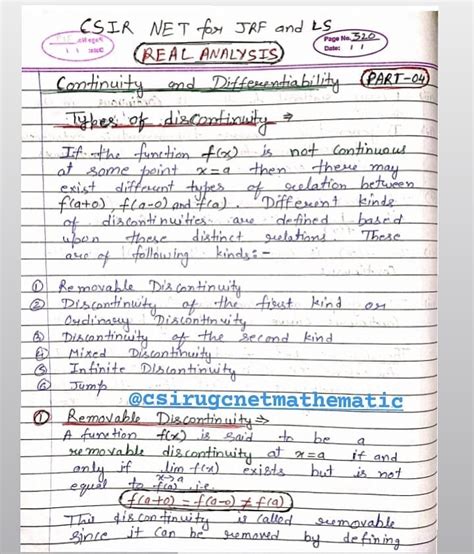 CSIR NET for JRF and LS
Page No. 320
Date: 11
REAL ANALYSIS
Continuity and Differentiability (PART-04)
Types of discontinuity ⇒
If the function f(x) is not continuous
at some point x=a then there may
exist different types of relation between
f(a+0) f(a-0) and f(a). Different kinds
of discontinuities are defined based
upon these distinct relations. These
are of following kinds:-
① Removable Discontinuity
② Discontinuity of the first kind or
Ordinary Discontinuity
③ Discontinuity of the second kind
④ Mixed Discontinuity
⑤ Infinite Discontinuity
⑥ Jump
@csirugcnetmathematic
① Removable Discontinuity ⇒
A function f(x) is said to be a
removable discontinuity at x=a if and
only if lim f(x) exists but is not
x→a
equal to f(a) i.e.
f(a+0) = f(a-0) ≠ f(a)
This discontinuity is called removable
since it can be removed by defining